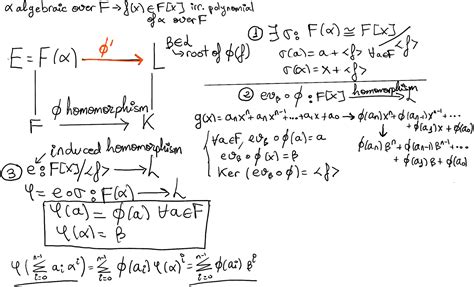 α algebraic over F → f(x) ∈ F[x] irr. polynomial
of α over F
E = F(α) → L
φ'
β ∈ L
↳ root of φ(f)
φ homomorphism
F → K
① ∃ σ: F(α) ≅ F[x]/<f>
σ(a) = a + <f> ∀a∈F
σ(α) = x + <f>
② ev_β ∘ φ: F[x] homomorphism → L
g(x) = a_n x^n + a_{n-1} x^{n-1} + ... + a_1 x + a_0 → φ(a_n) x^n + φ(a_{n-1}) x^{n-1} + ...
... + φ(a_1) x + φ(a_0)
φ(a_n) β^n + φ(a_{n-1}) β^{n-1} + ...
+ φ(a_1) β + φ(a_0)
∀a∈F, ev_β ∘ φ(a) = a
ev_β ∘ φ(x) = β
Ker (ev_β ∘ φ) = <f>
induced homomorphism
③ e: F[x]/<f> → L
φ = e∘σ: F(α) → L
φ(a) = φ(a) ∀a∈F
φ(α) = β
φ(∑_{i=0}^{n-1} a_i α^i) = ∑_{i=0}^{n-1} φ(a_i) φ(α)^i = ∑_{i=0}^{n-1} φ(a_i) β^i